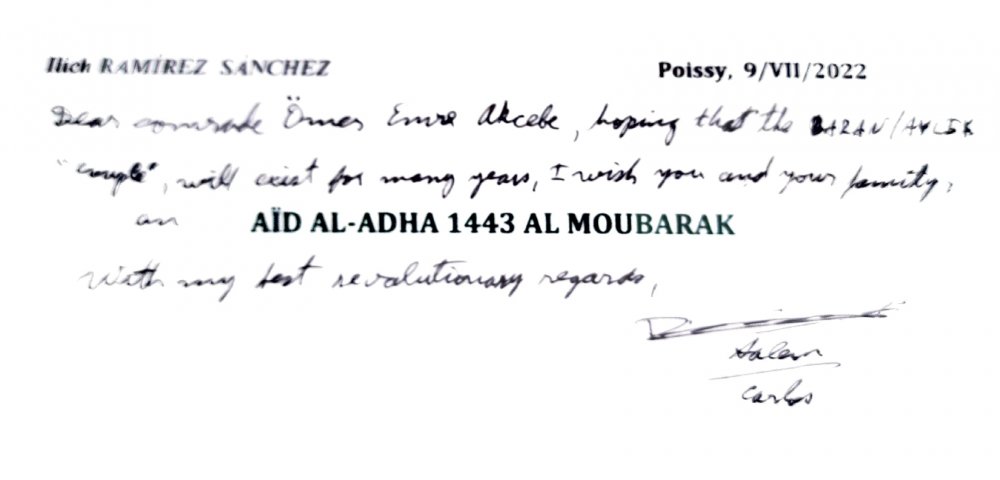 Ilich RAMÍREZ SÁNCHEZ
Poissy, 9/VII/2022
Dear comrade Ömer Emre Akcebe, hoping that the BARAN/AYLIK
"couple", will exist for many years, I wish you and your family,
an AÏD AL-ADHA 1443 AL MOUBARAK
With my best revolutionary regards,
Salem
Carlos